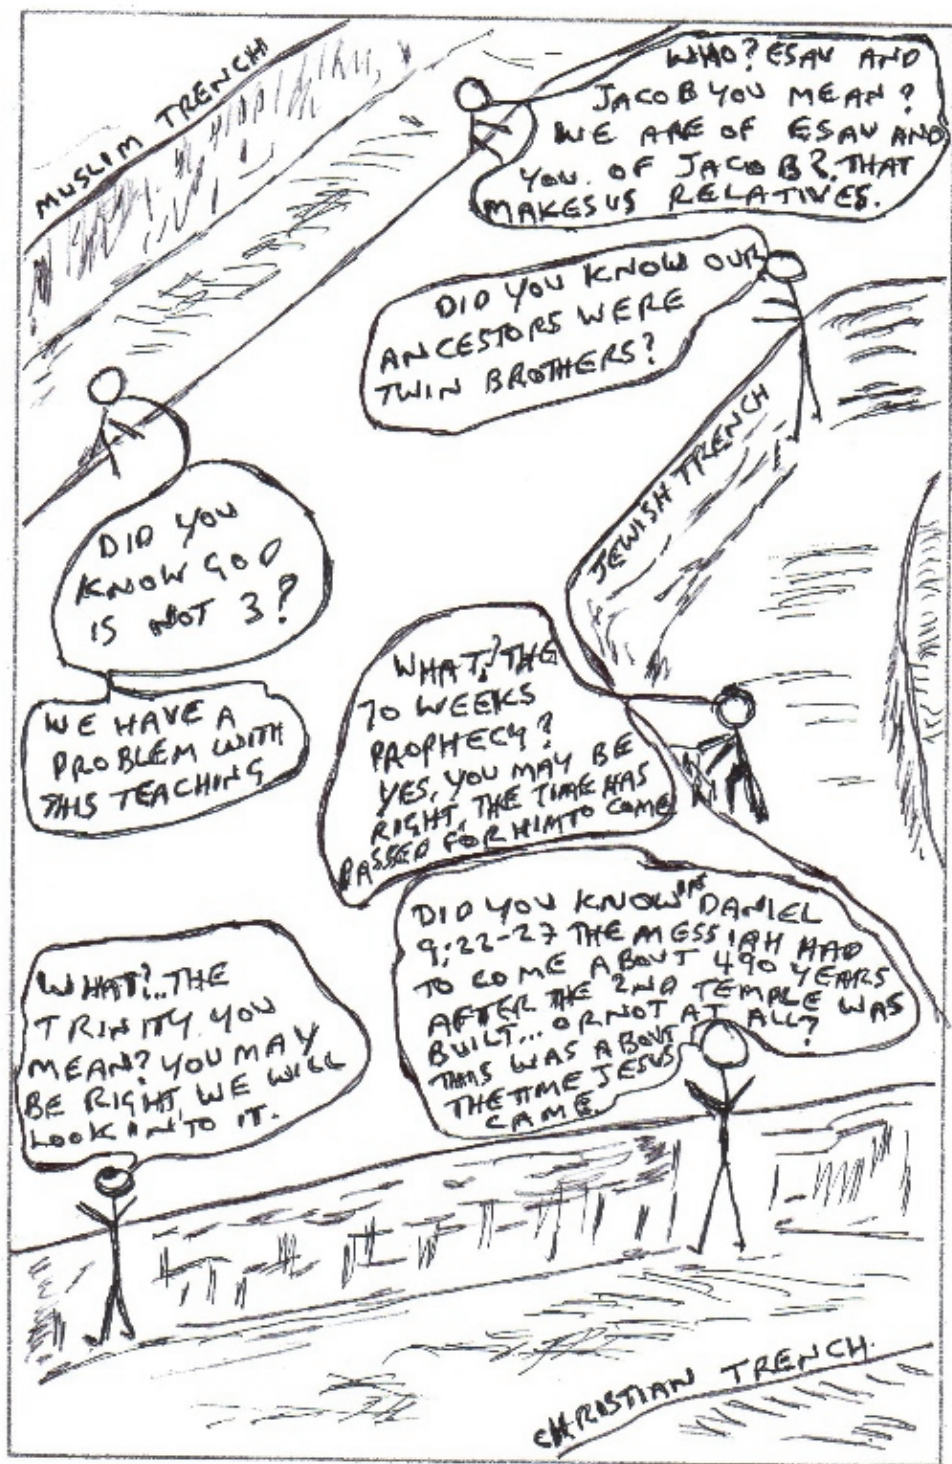 MUSLIM TRENCH
WHO? ESAU AND
JACOB YOU MEAN?
WE ARE OF ESAU AND
YOU. OF JACOB?. THAT
MAKES US RELATIVES.
DID YOU KNOW OUR
ANCESTORS WERE
TWIN BROTHERS?
JEWISH TRENCH
DID YOU
KNOW GOD
IS NOT 3?
WE HAVE A
PROBLEM WITH
THIS TEACHING
WHAT? THE
70 WEEKS
PROPHECY?
YES, YOU MAY BE
RIGHT, THE TIME HAS
PASSED FOR HIM TO COME
DID YOU KNOW DANIEL
9:22-27 THE MESSIAH HAD
TO COME ABOUT 490 YEARS
AFTER THE 2ND TEMPLE WAS
BUILT... OR NOT AT ALL?
THIS WAS ABOUT
THE TIME JESUS
CAME.
WHAT?...THE
TRINITY. YOU
MEAN? YOU MAY
BE RIGHT, WE WILL
LOOK INTO IT.
CHRISTIAN TRENCH.